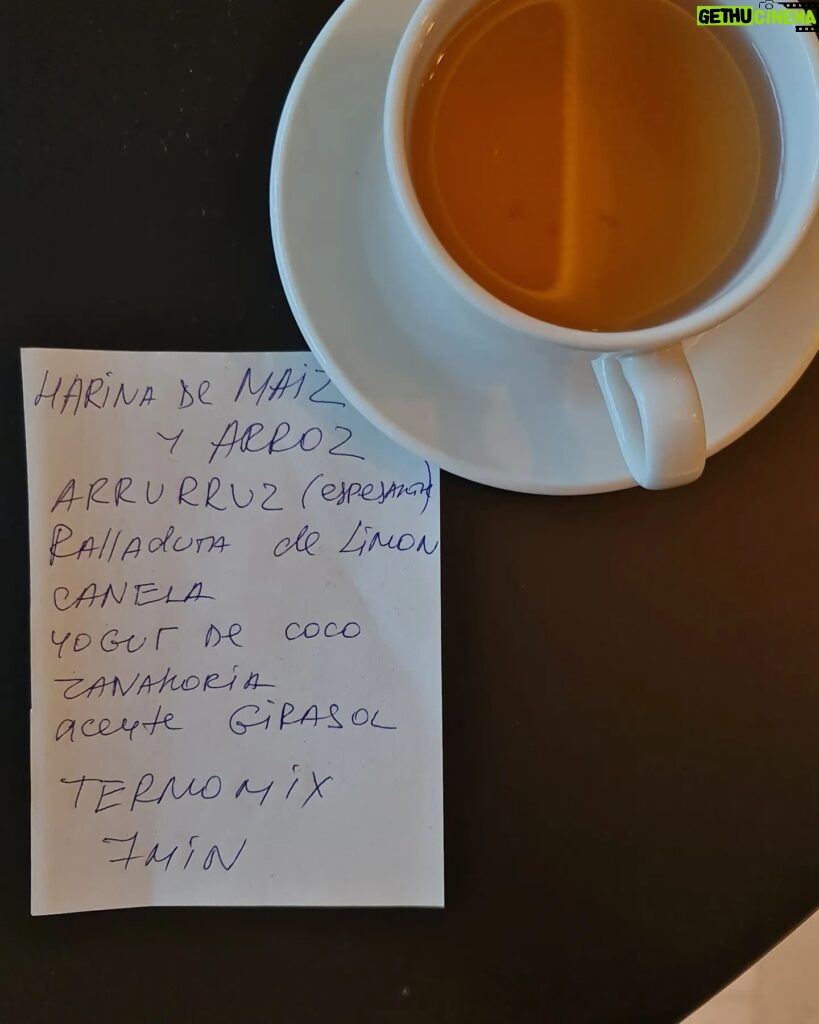 GETHUCINEMA
HARINA DE MAIZ
Y ARROZ
ARRURRUZ (espesante)
Ralladura de Limon
CANELA
YOGUR DE COCO
ZANAHORIA
aceyte GIRASOL
TERMOMIX
7MIN